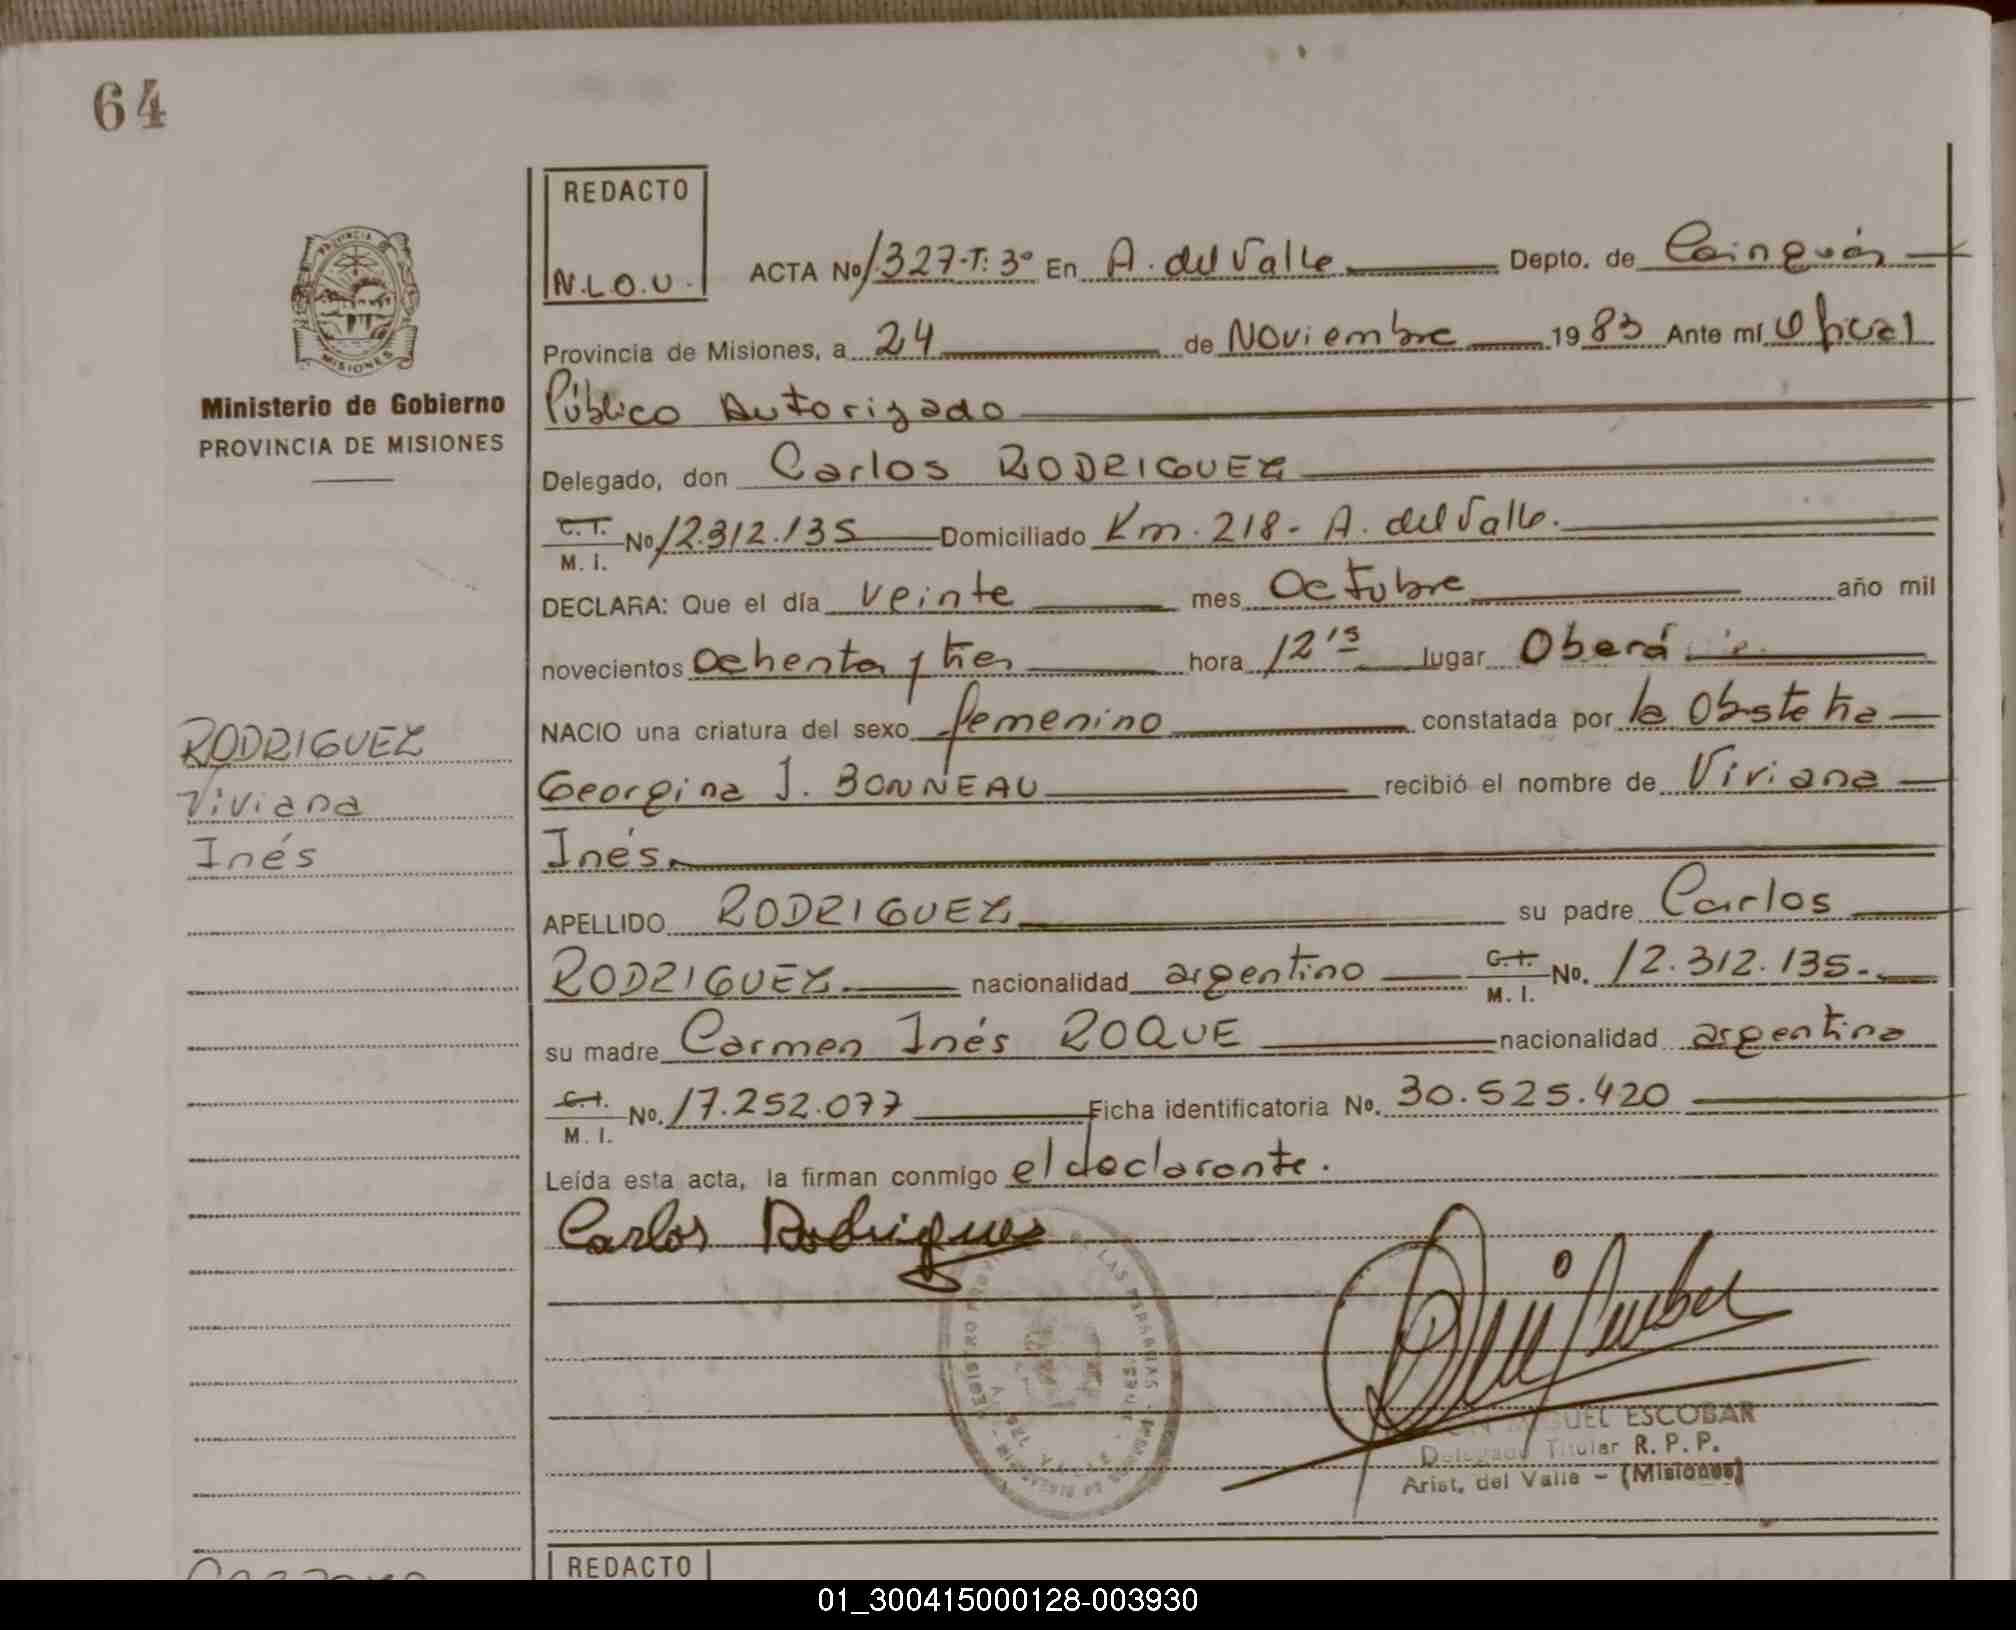 64
REDACTO
N.L.O.U.
PROVINCIA DE
MISIONES
Ministerio de Gobierno
PROVINCIA DE MISIONES
RODRIGUEZ
Viviana
Inés
ACTA Nº 1.327-T: 3º En A. del Valle Depto. de Cainguás
Provincia de Misiones, a 24 de Noviembre 1983 Ante mí Oficial
Público Autorizado
Delegado, don Carlos RODRIGUEZ
C.I. M. I. Nº 12.312.135 Domiciliado Km. 218 - A. del Valle.
DECLARA: Que el día veinte mes Octubre año mil
novecientos Ochenta y tres hora 12¹⁵ lugar Oberá
NACIO una criatura del sexo femenino constatada por la Obstetra
Georgina J. BONNEAU recibió el nombre de Viviana
Inés.
APELLIDO RODRIGUEZ su padre Carlos
RODRIGUEZ nacionalidad argentino C.I. M. I. Nº. 12.312.135.
su madre Carmen Inés ROQUE nacionalidad argentina
C.I. M. I. Nº. 17.252.077 Ficha identificatoria Nº. 30.525.420
Leída esta acta, la firman conmigo el declarante.
Carlos Rodrigues
REGISTRO PROV DE LAS PERSONAS
MIGUEL ESCOBAR
Delegado Titular R. P. P.
Arist. del Valle - (Misiones)
REDACTO
01_300415000128-003930